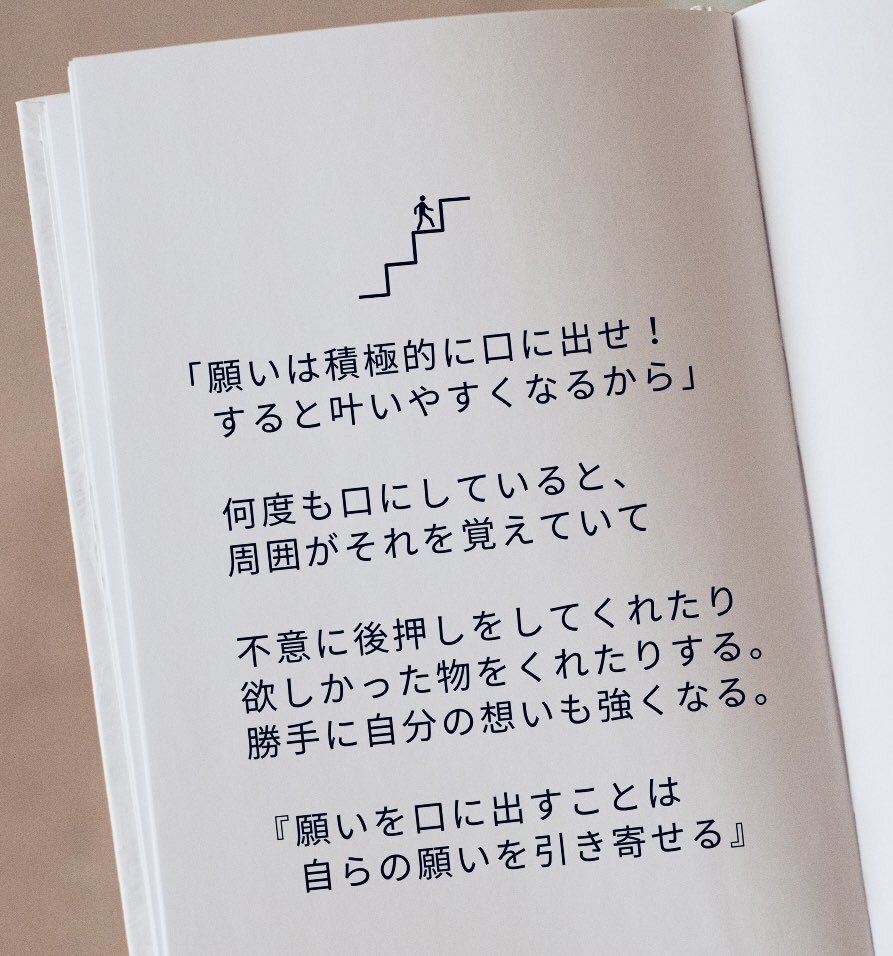 「願いは積極的に口に出せ！
すると叶いやすくなるから」
何度も口にしていると、
周囲がそれを覚えていて
不意に後押しをしてくれたり
欲しかった物をくれたりする。
勝手に自分の想いも強くなる。
『願いを口に出すことは
自らの願いを引き寄せる』